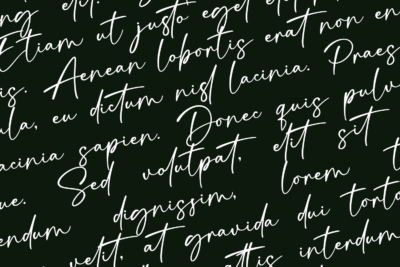 elit. eget
Etiam ut justo eget
is. Aenean lobortis erat non en
ula, eu dictum nisl lacinia. Praes
acinia sapien. Donec quis pulv
ue. Sed volutpat, elit sit
endum dignissim, lorem t
velit, at gravida dui torto
attis interdum